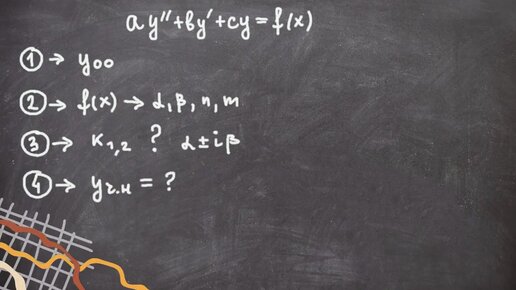 ay''+by'+cy=f(x)
① → yоо
② → f(x) → α, β, n, m
③ → K₁,₂ ? α±iβ
④ → yч.н = ?